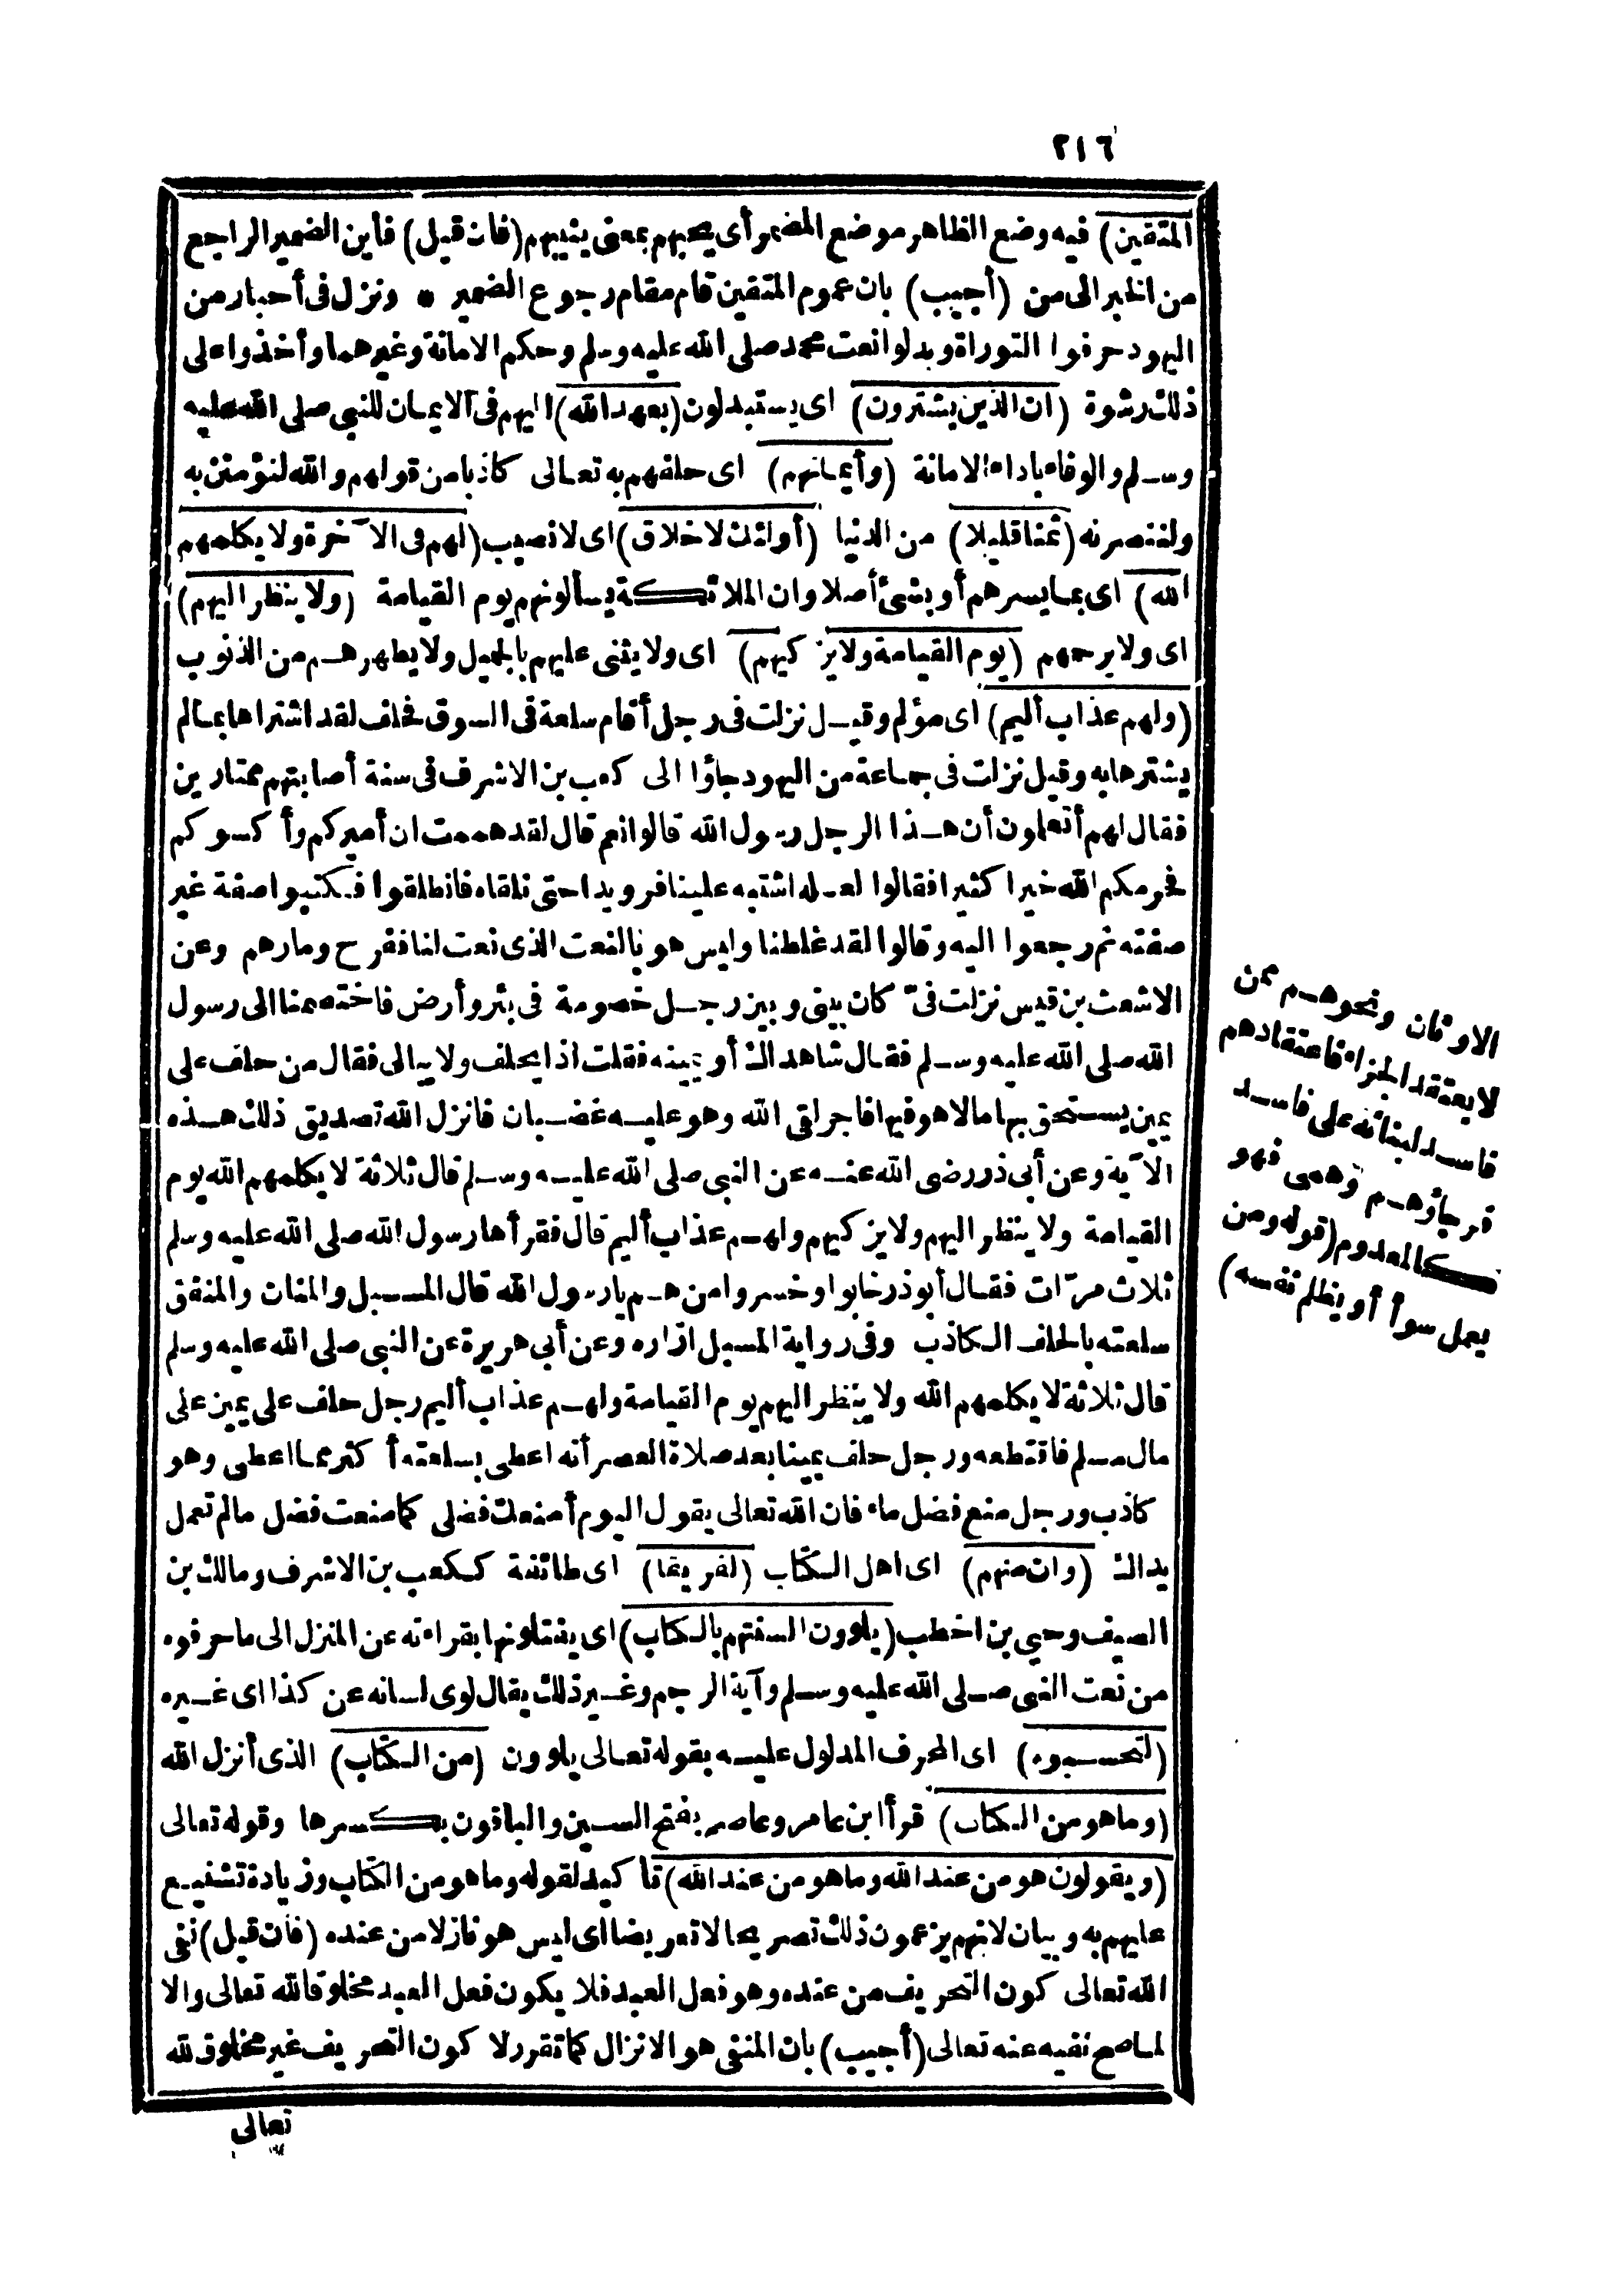 ٢١٦
المتقين) فيه وضع الظاهر موضع المضمر أى يحبهم بمعنى يثيبهم (فان قيل) فأين الضمير الراجع
من الخبر الى من (أجيب) بان عموم المتقين قام مقام رجوع الضمير * ونزل فى أحبار من
اليهود حرفوا التوراة وبدلوا نعت محمد صلى الله عليه وسلم وحكم الامانة وغيرهما وأخذوا على
ذلك رشوة (ان الذين يشترون) اى يستبدلون (بعهد الله) اليهم فى الايمان للنبى صلى الله عليه
وسلم والوفاء باداء الامانة (وأيمانهم) اى حلفهم به تعالى كاذبا من قولهم والله لنؤمنن به
ولننصرنه (ثمنا قليلا) من الدنيا (أولئك لا خلاق) اى لا نصيب (لهم فى الآخرة ولا يكلمهم
الله) اى بما يسرهم أو بشئ أصلا وان الملائكة يسألونهم يوم القيامة (ولا ينظر اليهم)
اى ولا يرحمهم (يوم القيامة ولا يزكيهم) اى ولا يثنى عليهم بالجميل ولا يطهرهم من الذنوب
(ولهم عذاب أليم) اى مؤلم وقيل نزلت فى رجل أقام سلعة فى السوق فحلف لقد اشتراها بمالم
يشترها به وقيل نزلت فى جماعة من اليهود جاؤا الى كعب بن الاشرف فى سنة أصابتهم ممتارين
فقال لهم أتعلمون أن هذا الرجل رسول الله قالوا نعم قال لقد هممت ان أميركم وأكسوكم
فحرمكم الله خيرا كثيرا فقالوا لعله اشتبه علينا فرويدا حتى نلقاه فانطلقوا فكتبوا صفة غير
صفته ثم رجعوا اليه وقالوا لقد غلطنا وليس هو بالنعت الذى نعت لنا ففرح ومارهم وعن
الاشعث بن قيس نزلت فىّ كان بينى وبين رجل خصومة فى بئر وأرض فاختصمنا الى رسول
الله صلى الله عليه وسلم فقال شاهداك أو يمينه فقلت اذا يحلف ولا يبالى فقال من حلف على
يمين يستحق بها مالا هو فيها فاجر لقى الله وهو عليه غضبان فانزل الله تصديق ذلك هذه
الآية وعن أبى ذر رضى الله عنه عن النبى صلى الله عليه وسلم قال ثلاثة لا يكلمهم الله يوم
القيامة ولا ينظر اليهم ولا يزكيهم ولهم عذاب أليم قال فقرأها رسول الله صلى الله عليه وسلم
ثلاث مرّات فقال أبوذر خابوا وخسروا من هم يارسول الله قال المسبل والمنان والمنفق
سلعته بالحلف الكاذب وفى رواية المسبل ازاره وعن أبى هريرة عن النبى صلى الله عليه وسلم
قال ثلاثة لا يكلمهم الله ولا ينظر اليهم يوم القيامة ولهم عذاب أليم رجل حلف على يمين على
مال مسلم فاقتطعه ورجل حلف يمينا بعد صلاة العصر أنه اعطى بسلعته أكثر مما اعطى وهو
كاذب ورجل منع فضل ماء فان الله تعالى يقول اليوم أمنعك فضلى كما منعت فضل مالم تعمل
يداك (وان منهم) اى اهل الكتاب (لفريقا) اى طائفة ككعب بن الاشرف ومالك بن
الصيف وحيي بن اخطب (يلوون السنتهم بالكتاب) اى يفتلونها بقراءته عن المنزل الى ما حرفوه
من نعت النبى صلى الله عليه وسلم وآية الرجم وغير ذلك يقال لوى لسانه عن كذا اى غيره
(لتحسبوه) اى المحرف المدلول عليه بقوله تعالى يلوون (من الكتاب) الذى أنزل الله
(وما هو من الكتاب) قرأ ابن عامر وعاصم بفتح السين والباقون بكسرها وقوله تعالى
(ويقولون هو من عند الله وما هو من عند الله) تأكيد لقوله وما هو من الكتاب وزيادة تشنيع
عليهم به وبيان لانهم يزعمون ذلك تصريحا لا تعريضا اى ليس هو نازلا من عنده (فان قيل) نفى
الله تعالى كون التحريف من عنده وهو فعل العبد فلا يكون فعل العبد مخلوقا لله تعالى والا
لما صح نفيه عنه تعالى (أجيب) بان المنفى هو الانزال كما تقرر لا كون التحريف غير مخلوق لله
تعالى
الاوثان ونحوهم ممن
لا يعتقد الجزاء فاعتقادهم
فاسد لبنائه على فاسد
فرجاؤهم وهمى فهو
كالمعدوم (قوله ومن
يعمل سوأ أو يظلم نفسه)